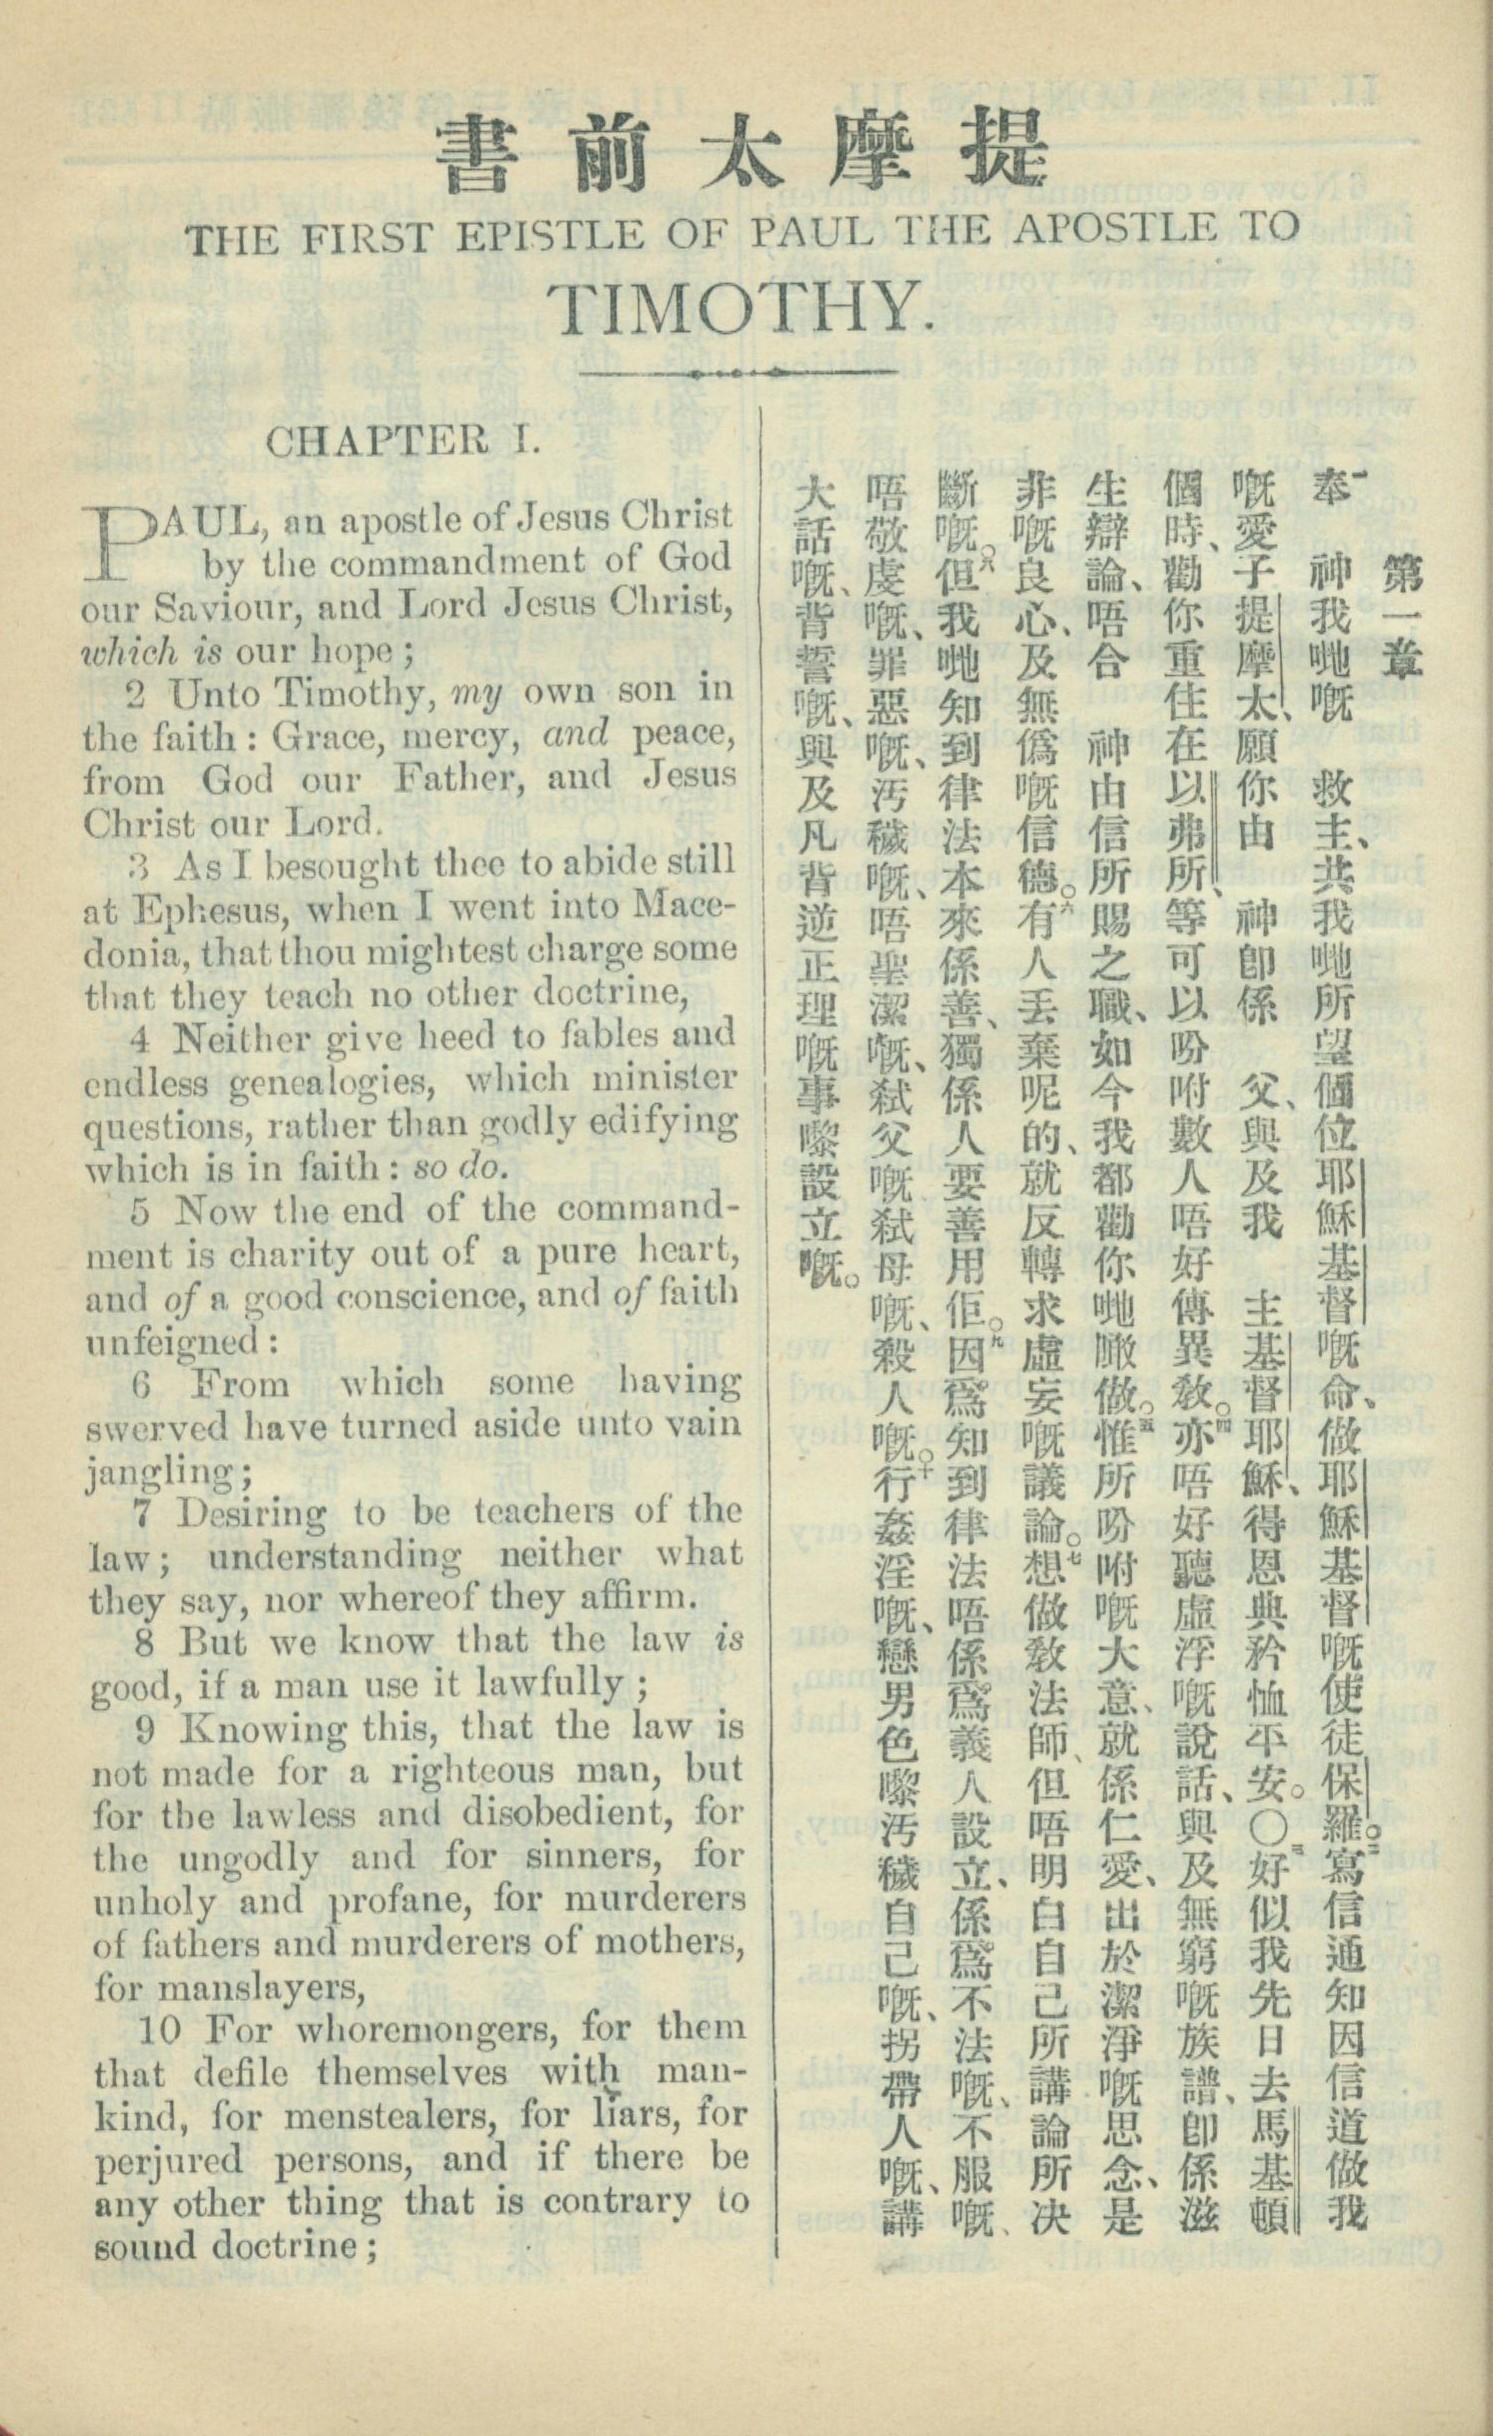 提摩太前書
THE FIRST EPISTLE OF PAUL THE APOSTLE TO
TIMOTHY.
CHAPTER I.
PAUL, an apostle of Jesus Christ
by the commandment of God
our Saviour, and Lord Jesus Christ,
which is our hope;
2 Unto Timothy, my own son in
the faith: Grace, mercy, and peace,
from God our Father, and Jesus
Christ our Lord.
3 As I besought thee to abide still
at Ephesus, when I went into Mace-
donia, that thou mightest charge some
that they teach no other doctrine,
4 Neither give heed to fables and
endless genealogies, which minister
questions, rather than godly edifying
which is in faith: so do.
5 Now the end of the command-
ment is charity out of a pure heart,
and of a good conscience, and of faith
unfeigned:
6 From which some having
swerved have turned aside unto vain
jangling;
7 Desiring to be teachers of the
law; understanding neither what
they say, nor whereof they affirm.
8 But we know that the law is
good, if a man use it lawfully;
9 Knowing this, that the law is
not made for a righteous man, but
for the lawless and disobedient, for
the ungodly and for sinners, for
unholy and profane, for murderers
of fathers and murderers of mothers,
for manslayers,
10 For whoremongers, for them
that defile themselves with man-
kind, for menstealers, for liars, for
perjured persons, and if there be
any other thing that is contrary to
sound doctrine;
第一章
一奉 神我哋嘅 救主、共我哋所望個位耶穌基督嘅命、做耶穌基督嘅使徒保羅。二寫信通知因信道做我
嘅愛子提摩太、願 你由 神卽係 父、與及我 主基督耶穌、得恩典矜恤平安。〇三好似我先日去馬基頓
個時、勸你重住在以弗所、等可以吩咐數人唔好傳異敎。四亦唔好聽虛浮嘅說話、與及無窮嘅族譜、卽係滋
生辯論、唔合 神由信所賜之職、如今我都勸你哋噉做。五惟所吩咐嘅大意、就係仁愛、出於潔淨嘅思念、是
非嘅良心、及無僞嘅信德。六有人丢棄呢的、就反轉求虛妄嘅議論。七想做敎法師、但唔明白自己所講論所决
斷嘅。八但我哋知到律法本來係善、獨係人要善用佢。九因爲知到律法唔係爲義人設立、係爲不法嘅、不服嘅、
唔敬虔嘅、罪惡嘅、汚穢嘅、唔聖潔嘅、弒父嘅弒母嘅、殺人嘅。十行姦淫嘅、戀男色嚟汚穢自己嘅、拐帶人嘅、講
大話嘅、背誓嘅、與及凡背逆正理嘅事嚟設立嘅。